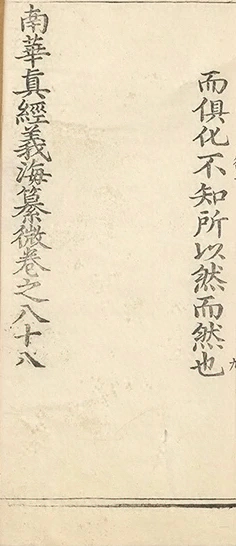 而俱化不知所以然而然也
南華真經義海纂微卷之八十八